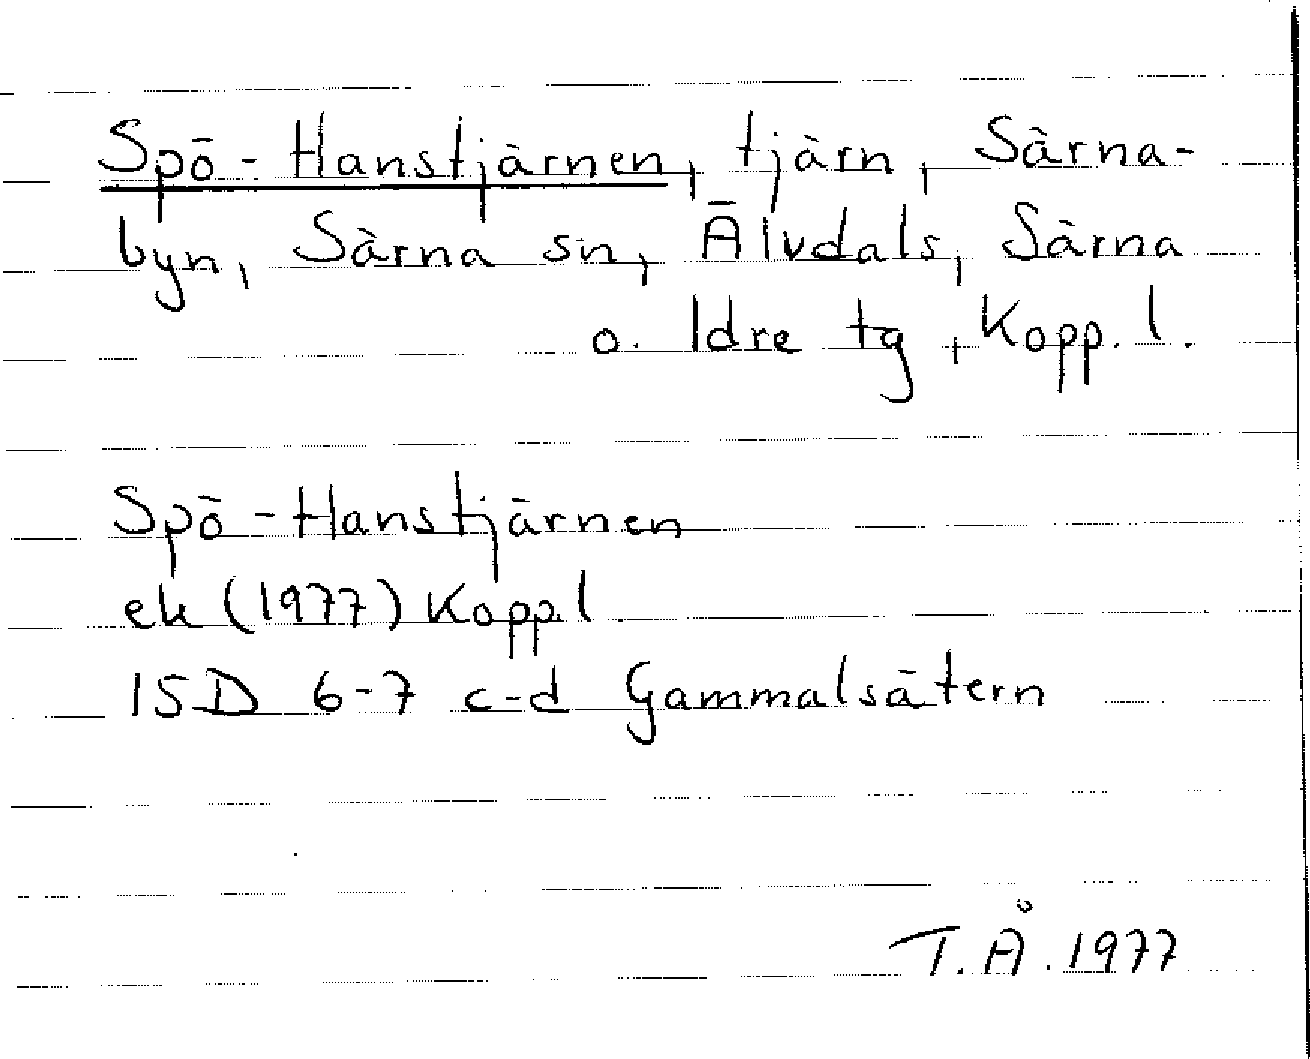 Spö-Hanstjärnen, tjärn, Särna-
byn, Särna sn, Älvdals, Särna
o. Idre tg, Kopp. l.
Spö-Hanstjärnen
ek (1977) Kopp.l
15D 6-7 c-d Gammalsätern
T.Å. 1977